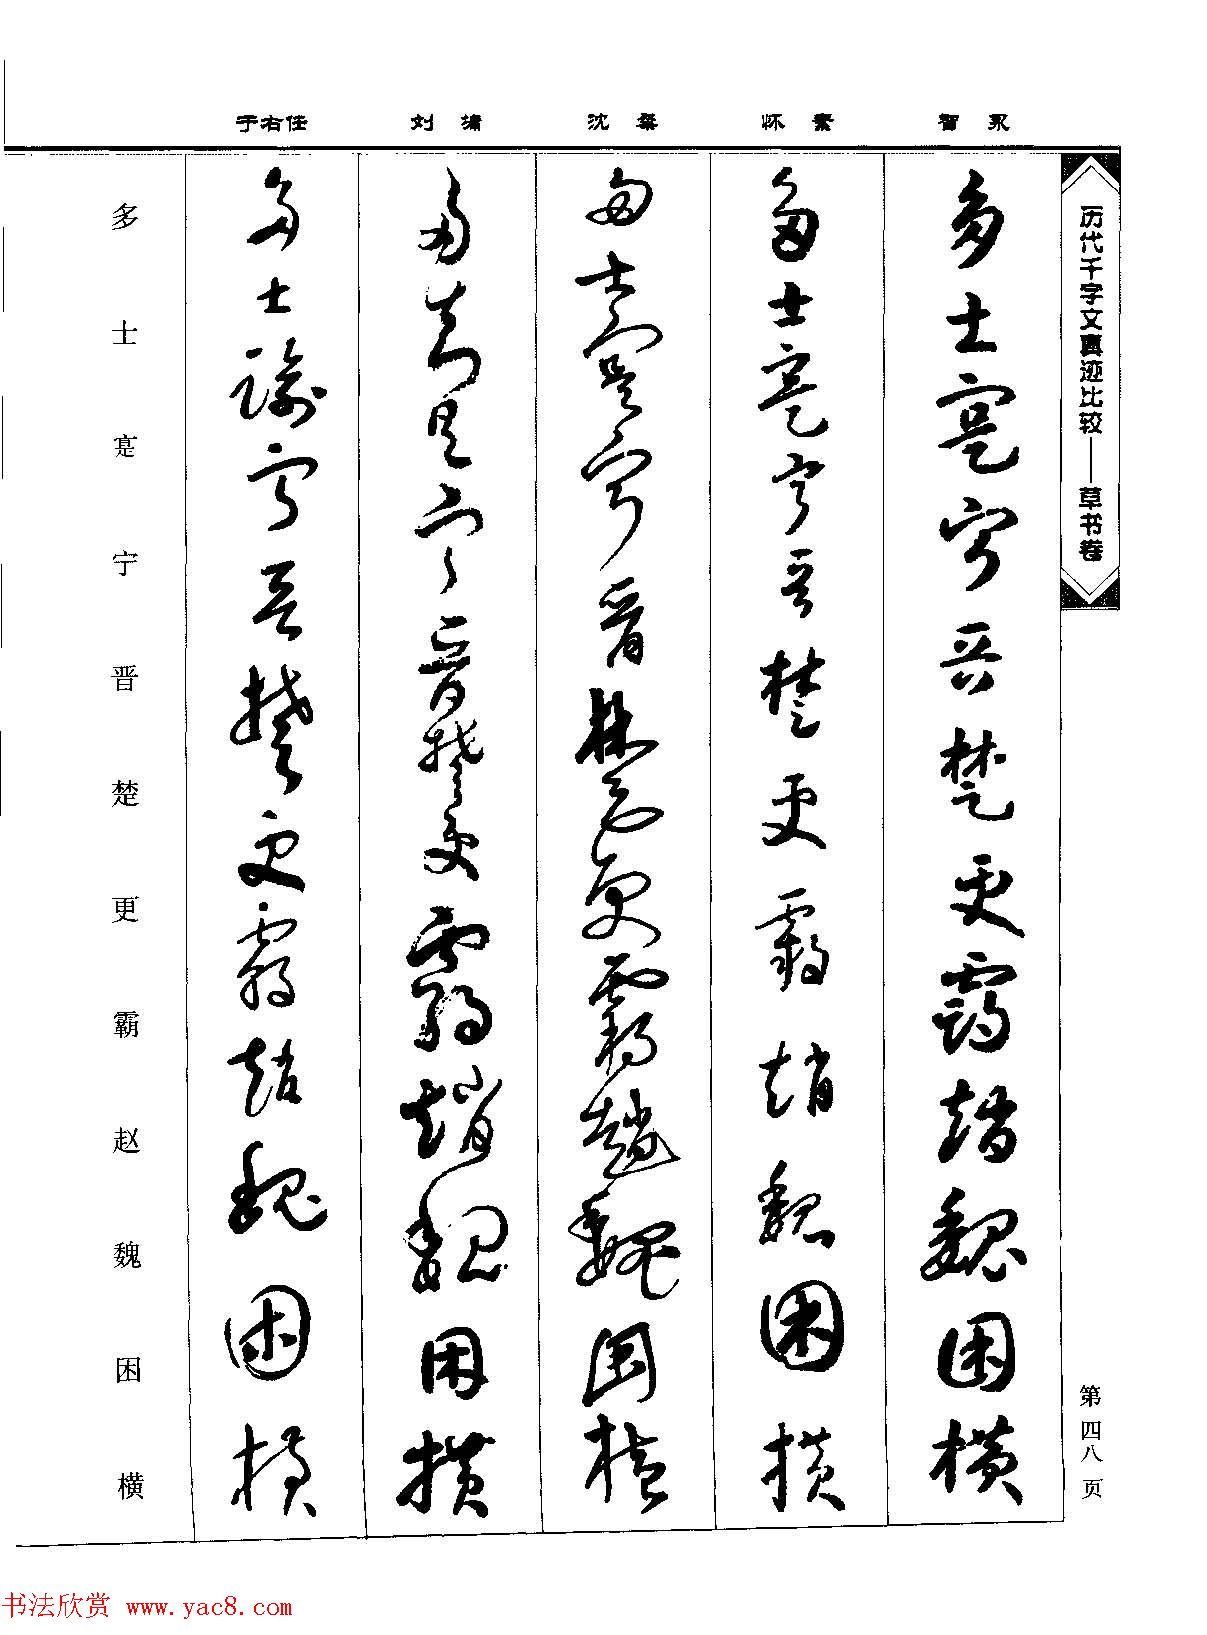 历代千字文真迹比较——草书卷
第四八页
智永
多士寔宁晋楚更霸赵魏困横
怀素
多士寔宁晋楚更霸赵魏困横
沈粲
多士寔宁晋楚更霸赵魏困横
刘
多士寔宁晋楚更霸赵魏困横
于右任
多士宁晋楚更霸赵魏困横
多士寔宁晋楚更霸赵魏困横
书法欣赏 www.yac8.com